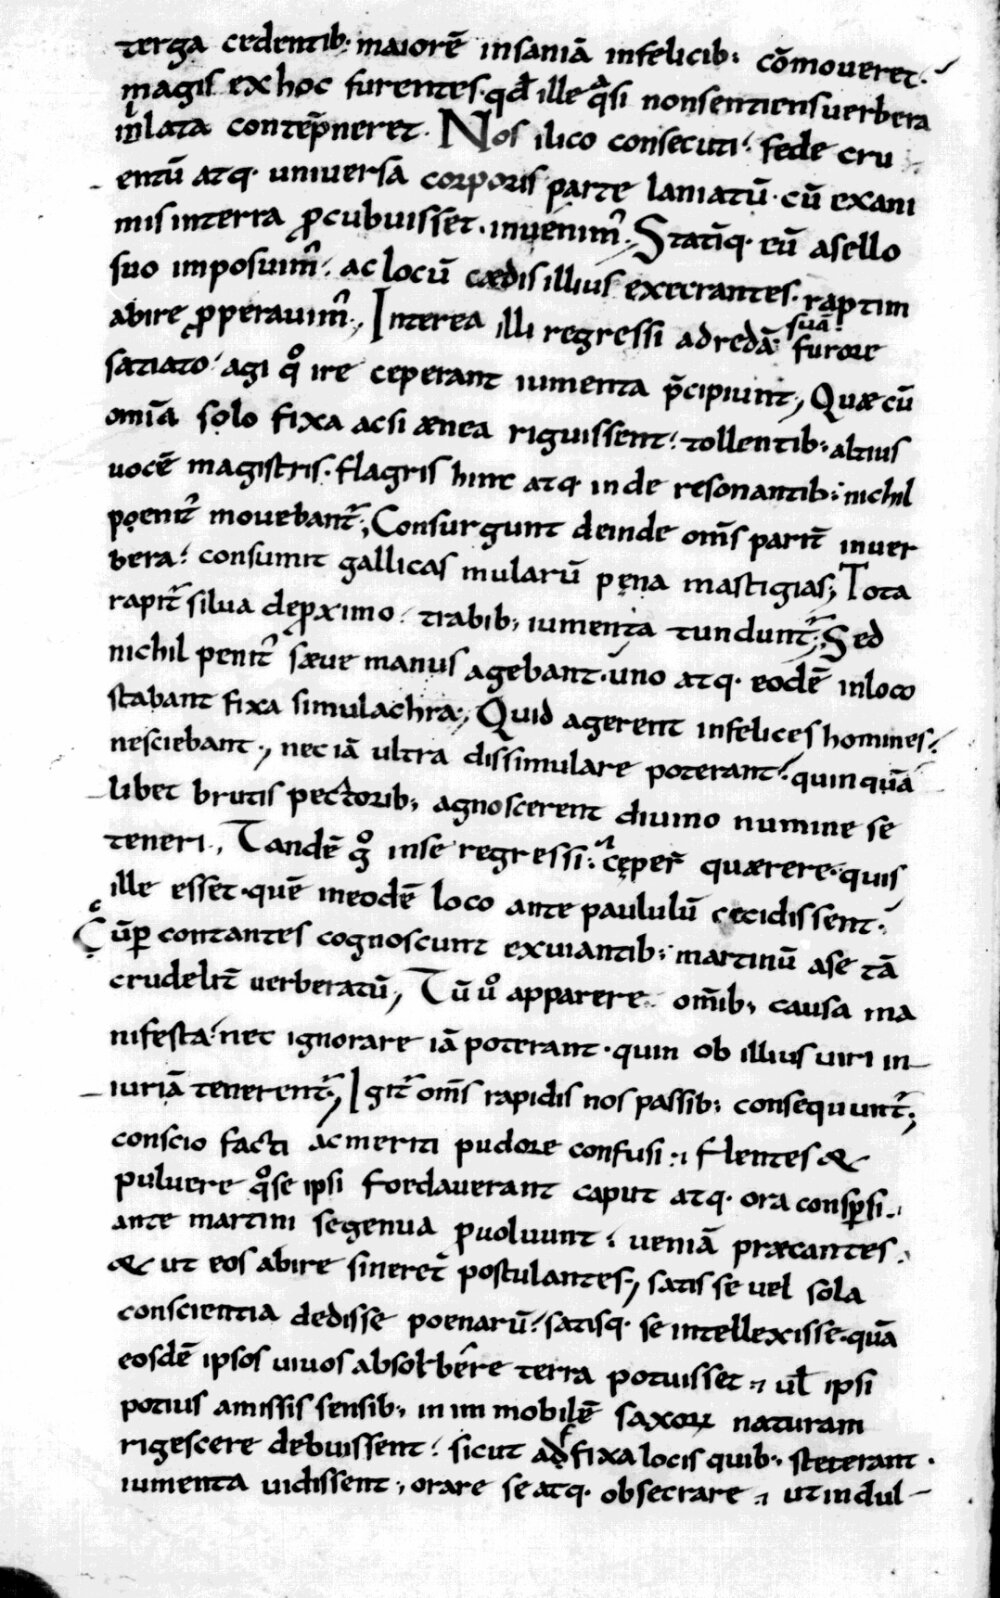 terga cedentib; maiorē insaniā infelicib; cōmoueret.
magis ex hoc furentes. qđ ille q̄si non sentiens uerbera
inlata contēp̄neret. Nos ilico consecuti. fede cru
entū atq. uniuersa corporis parte laniatū. cū exani
mis in terra p̄cubuisset. inuenim̄; Statiq. eū asello
suo imposuim̄. ac locū cædis illius execrantes. raptim
abire p̄perauim̄; Interea illi regressi ad redā suā furore
satiato. agi q̊ ire ceperant iumenta p̄cipiunt; Quæ cū
omīa solo fixa acsi ænea riguissent. tollentib; altius
uocē magistris. flagris hinc atq inde resonantib; nichil
poenit̄ mouebant̄; Consurgunt deinde om̄s parit̄ in uer
bera. consumit gallicas mularū pęna mastigias; Tota
rapit̄ silua de p̄ximo. trabib; iumenta tundunt̄; Sed
nichil penit̄ sæue manus agebant. uno atq. eodē in loco
stabant fixa simulachra; Quid agerent infelices homines.
nesciebant; nec iā ultra dissimulare poterant. quin quā
libet brutis pectorib; agnoscerent diuino numine se
teneri; Tandē g̊ in se regressi. cęper̄ quærere. quis
ille esset. quē in eodē loco ante paululū cecidissent.
Cū p̱contantes cognoscunt ex uiantib; martinū a se tā
crudelit̄ uerberatū; Tū ů apparere om̄ib; causa ma
nifesta. nec ignorare iā poterant. quin ob illius uiri in
iuriā tenerent̄; Igit̄ om̄s rapidis nos passib; consequunt̄;
conscio facti ac meriti pudore confusi. flentes &
puluere q̊ se ipsi foedauerant caput atq. ora consp̱si.
ante martini se genua p̱uoluunt. ueniā præcantes.
& ut eos abire sineret̄ postulantes; satis se uel sola
conscientia dedisse poenarū. satisq. se intellexisse. quā
eosdē ipsos uiuos absorbere terra potuisset. uł ipsi
potius amissis sensib; in immobilē saxoꝝ naturam
rigescere debuissent. sicut adfixa locis quib; steterant.
iumenta uidissent. orare se atq. obsecrare. ut indul